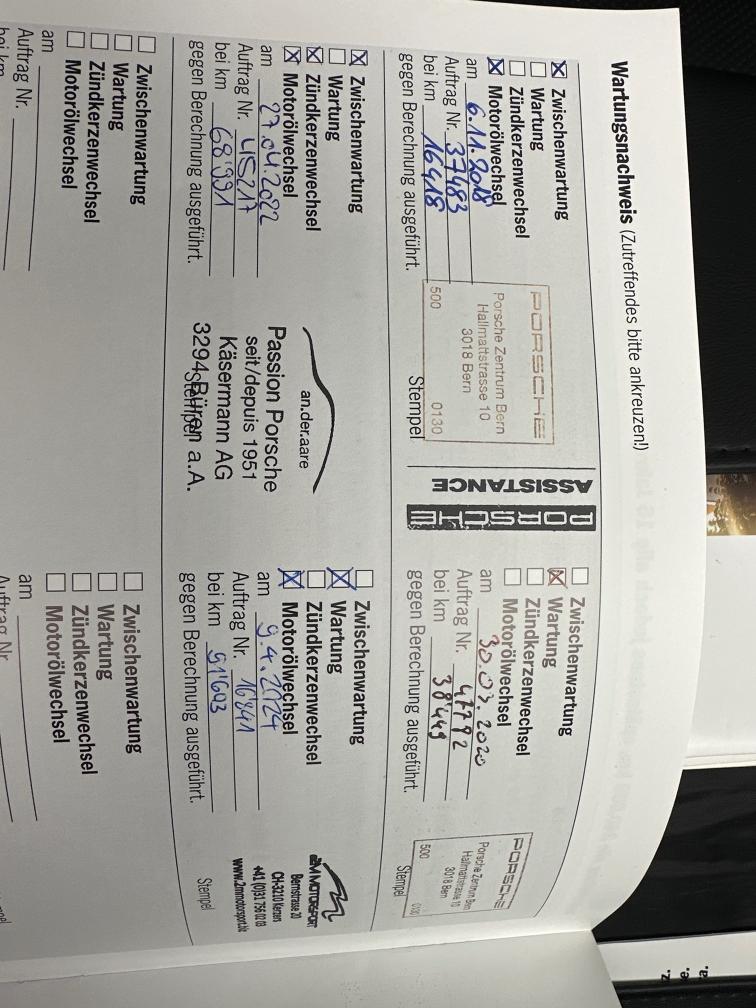 Wartungsnachweis (Zutreffendes bitte ankreuzen!)
Zwischenwartung
Wartung
Zündkerzenwechsel
Motorölwechsel
am 6.11.2018
Auftrag Nr. 37483
bei km 16418
gegen Berechnung ausgeführt.
PORSCHE
Porsche Zentrum Bern
Hallmattstrasse 10
3018 Bern
500 0130
Stempel
ASSISTANCE
PORSCHE
Zwischenwartung
Wartung
Zündkerzenwechsel
Motorölwechsel
am 30.03.2020
Auftrag Nr. 47792
bei km 38'449
gegen Berechnung ausgeführt.
PORSCHE
Porsche Zentrum Bern
Hallmattstrasse 10
3018 Bern
500
Stempel
Zwischenwartung
Wartung
Zündkerzenwechsel
Motorölwechsel
am 27.04.2022
Auftrag Nr. 45217
bei km 68'991
gegen Berechnung ausgeführt.
an.der.aare
Passion Porsche
seit/depuis 1951
Käsermann AG
3294 Büren a.A.
Stempel
Zwischenwartung
Wartung
Zündkerzenwechsel
Motorölwechsel
am 9.4.2024
Auftrag Nr. 16841
bei km 91'603
gegen Berechnung ausgeführt.
2M MOTORSPORT
Bernstrasse 20
CH-3210 Kerzers
www.2mmotorsport.ch
Stempel
Zwischenwartung
Wartung
Zündkerzenwechsel
Motorölwechsel
am
Auftrag Nr.
bei km
Zwischenwartung
Wartung
Zündkerzenwechsel
Motorölwechsel
am
Auftrag Nr.